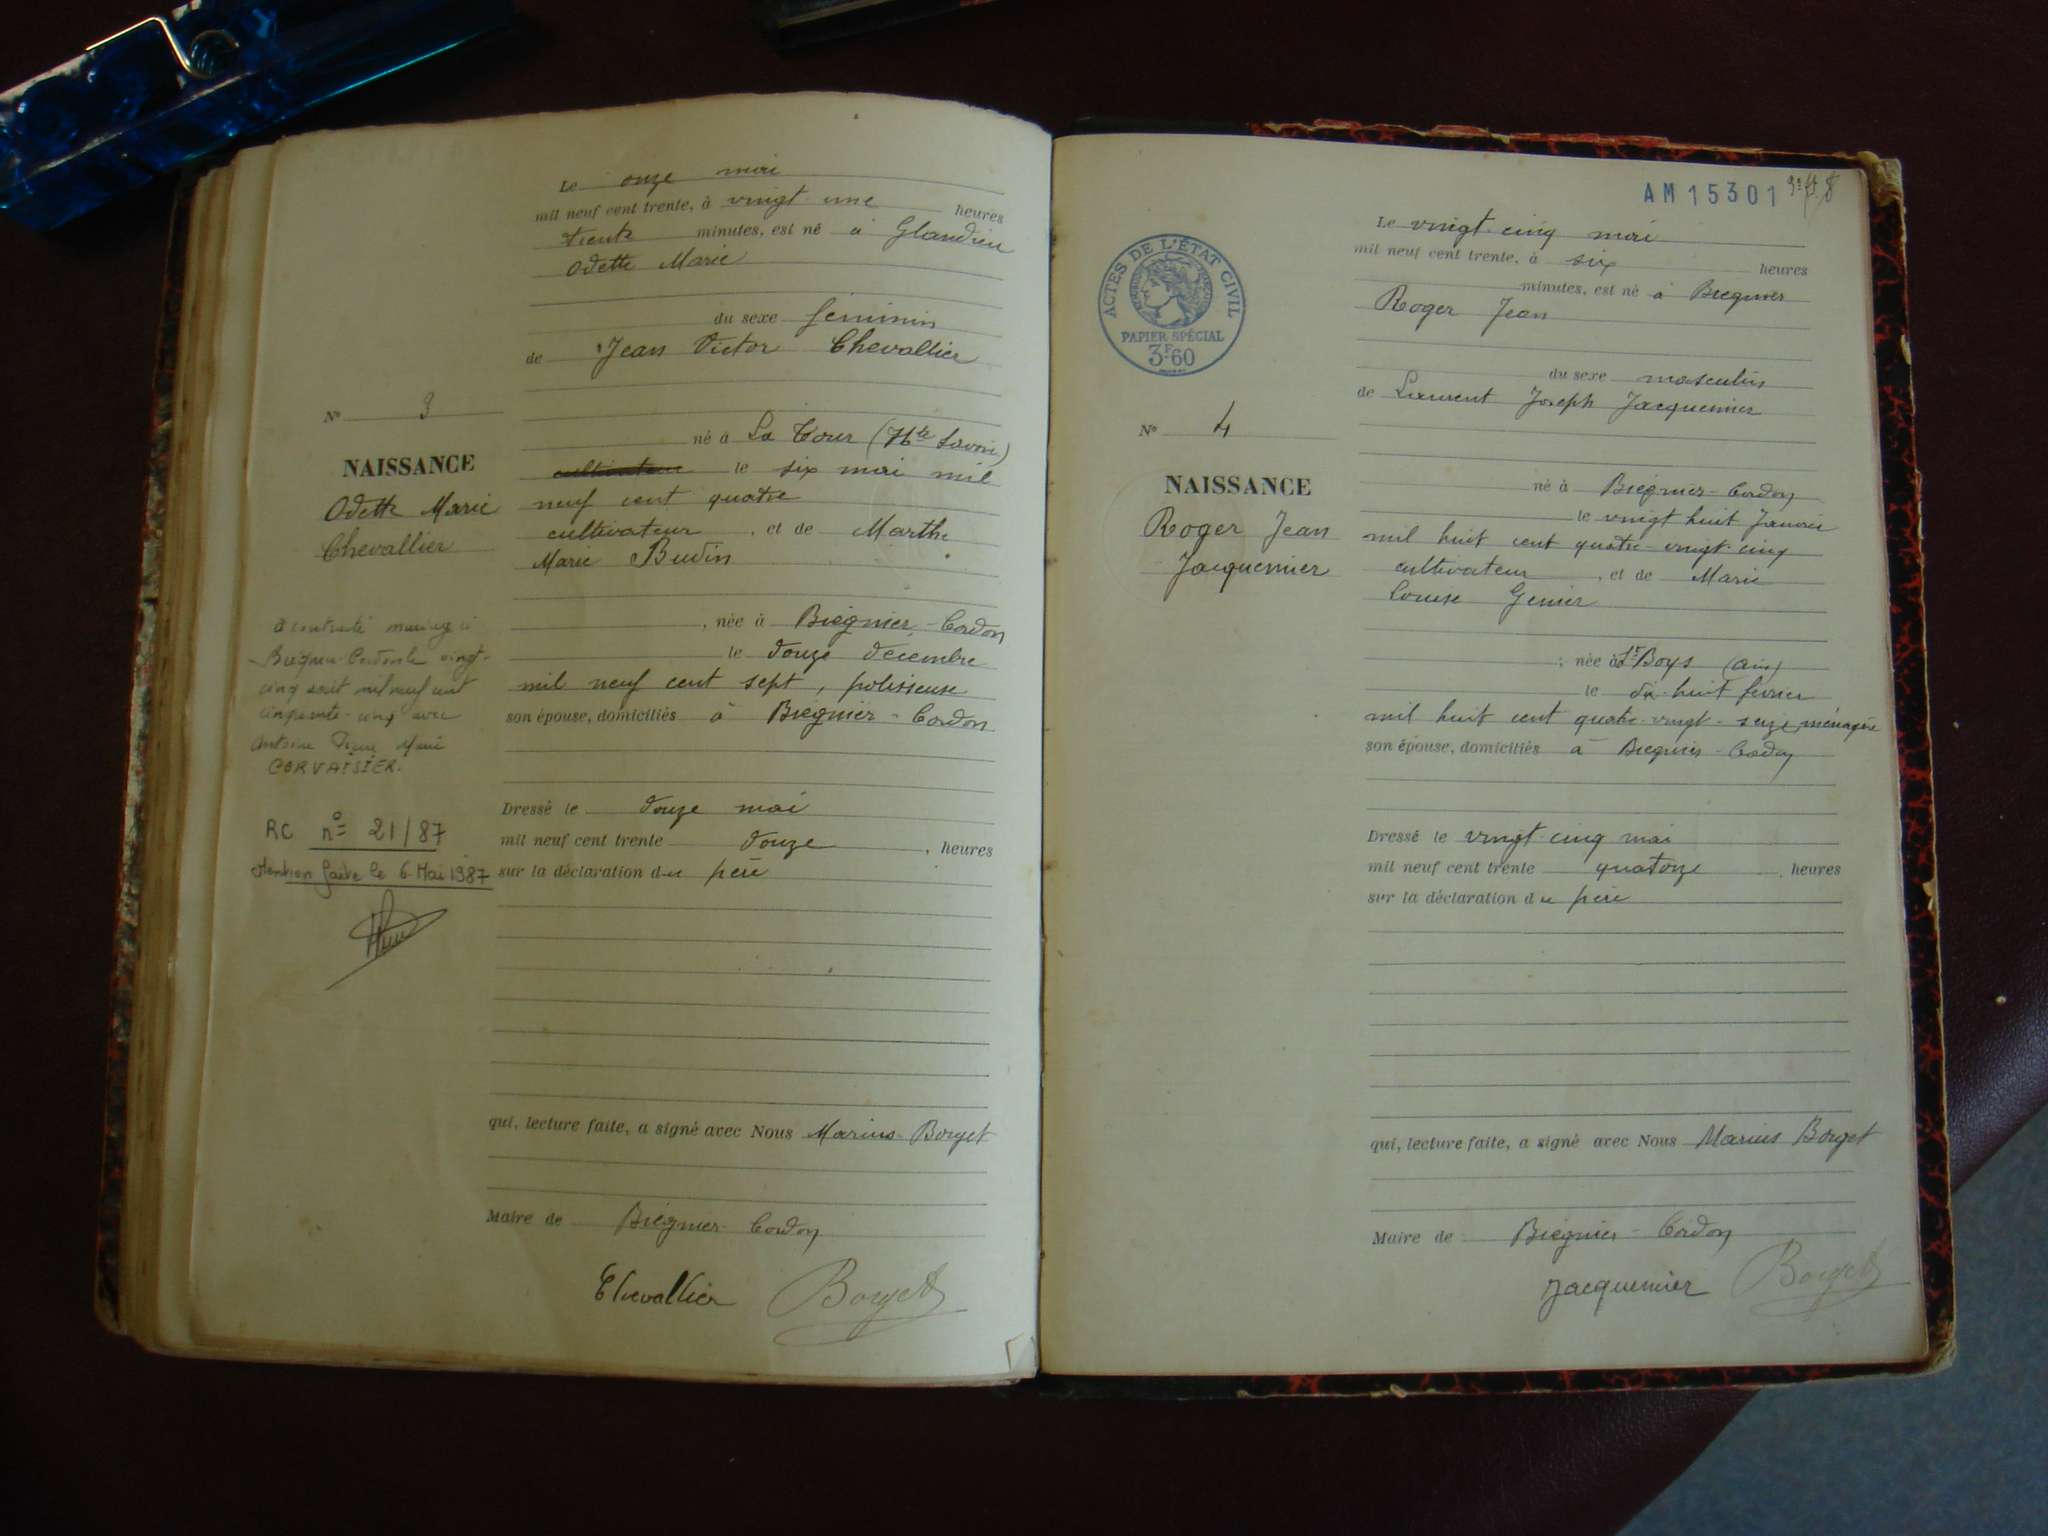 Le onze mai
mil neuf cent trente, à vingt une heures
trente minutes, est né à Glandieu
Odette Marie
du sexe féminin
de Jean Victor Chevallier
N° 3
né à La Tour (Hte Savoie)
NAISSANCE
cultivateur le six mai mil
Odette Marie
neuf cent quatre
Chevallier
cultivateur, et de Marthe
Marie Budin
, née à Brégnier-Cordon
le douze décembre
mil neuf cent sept, polisseuse
son épouse, domiciliés à Brégnier-Cordon
a contracté mariage à
Brégnier-Cordon le vingt-
cinq août mil neuf cent
cinquante-cinq avec
Antoine Marie
CORVAISIER.
RC n° 21/87
Mention faite le 6 Mai 1987
Dressé le douze mai
mil neuf cent trente douze, heures
sur la déclaration du père
qui, lecture faite, a signé avec Nous Marius Borget
Maire de Brégnier-Cordon
Chevallier Borget
AM 15301
ACTES DE L'ÉTAT CIVIL
PAPIER SPÉCIAL
3F60
Le vingt-cinq mai
mil neuf cent trente, à six heures
minutes, est né à Brégnier
Roger Jean
du sexe masculin
de Laurent Joseph Jacquemier
N° 4
né à Brégnier-Cordon
NAISSANCE
le vingt huit Janvier
Roger Jean
mil huit cent quatre-vingt-cinq
Jacquemier
cultivateur, et de Marie
Louise
; née à St Boys (Ain)
le dix-huit février
mil huit cent quatre-vingt-seize ménagère
son épouse, domiciliés à Brégnier-Cordon
Dressé le vingt-cinq mai
mil neuf cent trente quatorze, heures
sur la déclaration du père
qui, lecture faite, a signé avec Nous Marius Borget
Maire de Brégnier-Cordon
Jacquemier Borget